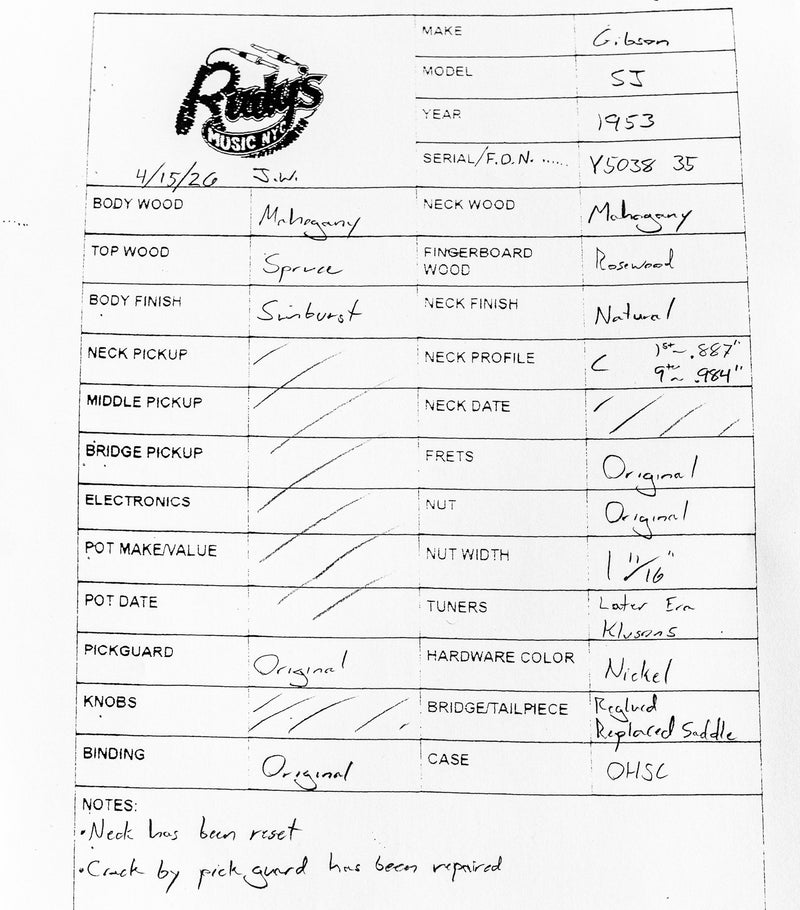 Rudy's
MUSIC NYC
4/15/26 J.W.
MAKE Gibson
MODEL SJ
YEAR 1953
SERIAL/F.O.N. ...... Y5038 35
BODY WOOD Mahogany NECK WOOD Mahogany
TOP WOOD Spruce FINGERBOARD WOOD Rosewood
BODY FINISH Sunburst NECK FINISH Natural
NECK PICKUP NECK PROFILE C 1st~ .887"
9th~ .984"
MIDDLE PICKUP NECK DATE
BRIDGE PICKUP FRETS Original
ELECTRONICS NUT Original
POT MAKE/VALUE NUT WIDTH 1 11/16"
POT DATE TUNERS Later Era
Klusons
PICKGUARD Original HARDWARE COLOR Nickel
KNOBS BRIDGE/TAILPIECE Reglued
Replaced Saddle
BINDING Original CASE OHSC
NOTES:
•Neck has been reset
•Crack by pickguard has been repaired